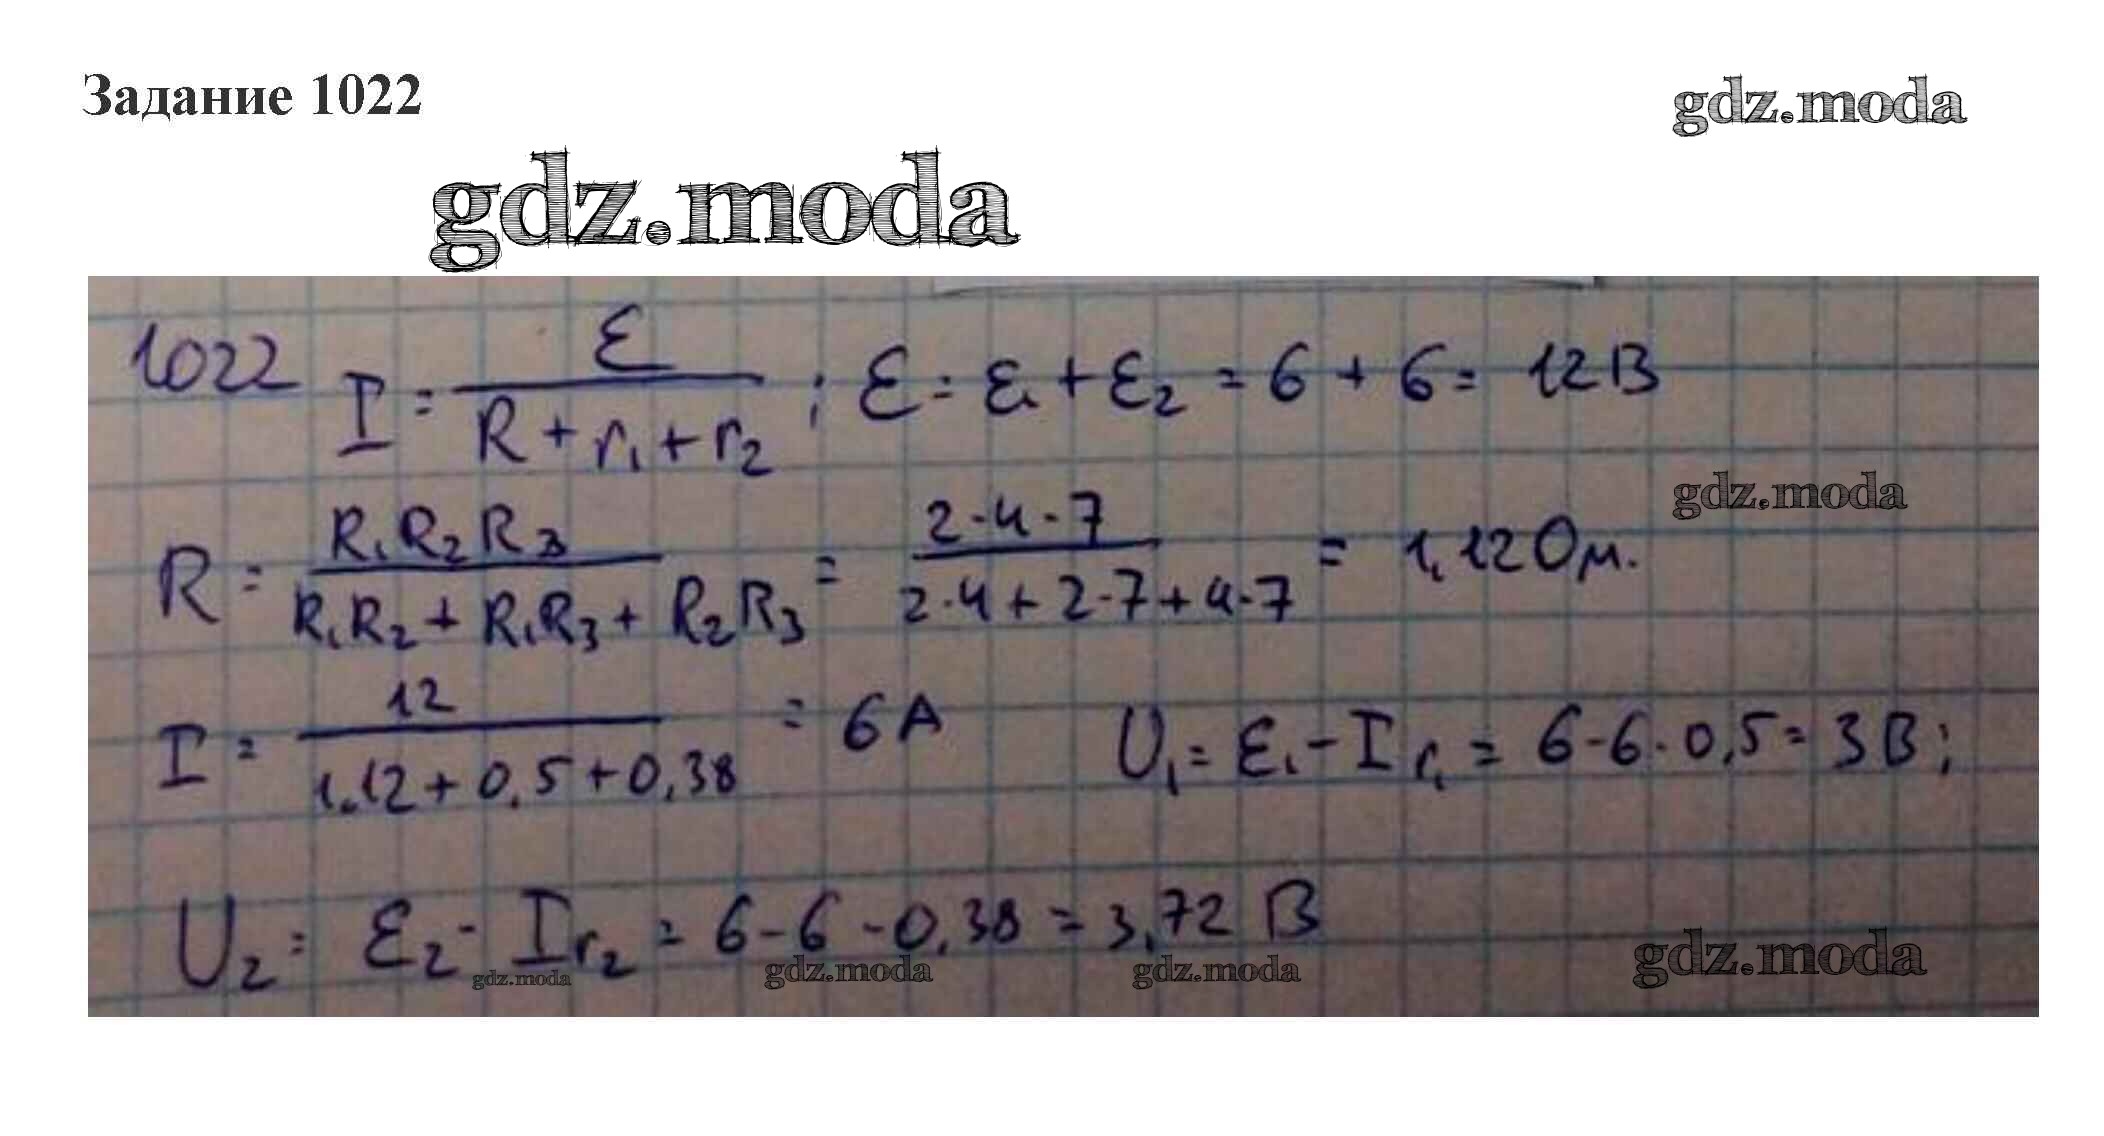 Задание 1022
gdz.moda
gdz.moda
1022 I = ε / (R + r₁ + r₂) ; ε = ε₁ + ε₂ = 6 + 6 = 12 В
gdz.moda
R = R₁R₂R₃ / (R₁R₂ + R₁R₃ + R₂R₃) = 2·4·7 / (2·4 + 2·7 + 4·7) = 1,12 Ом.
I = 12 / (1,12 + 0,5 + 0,38) = 6 А U₁ = ε₁ - I r₁ = 6 - 6 · 0,5 = 3 В ;
U₂ = ε₂ - I r₂ = 6 - 6 - 0,38 = 3,72 В
gdz.moda
gdz.moda
gdz.moda
gdz.moda